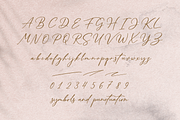 ABCDEFGHIJKL
MNOPQRSTUVWXYZ
abcdefghijklmnopqrstuvwxyz
0123456789
symbols and punctuation